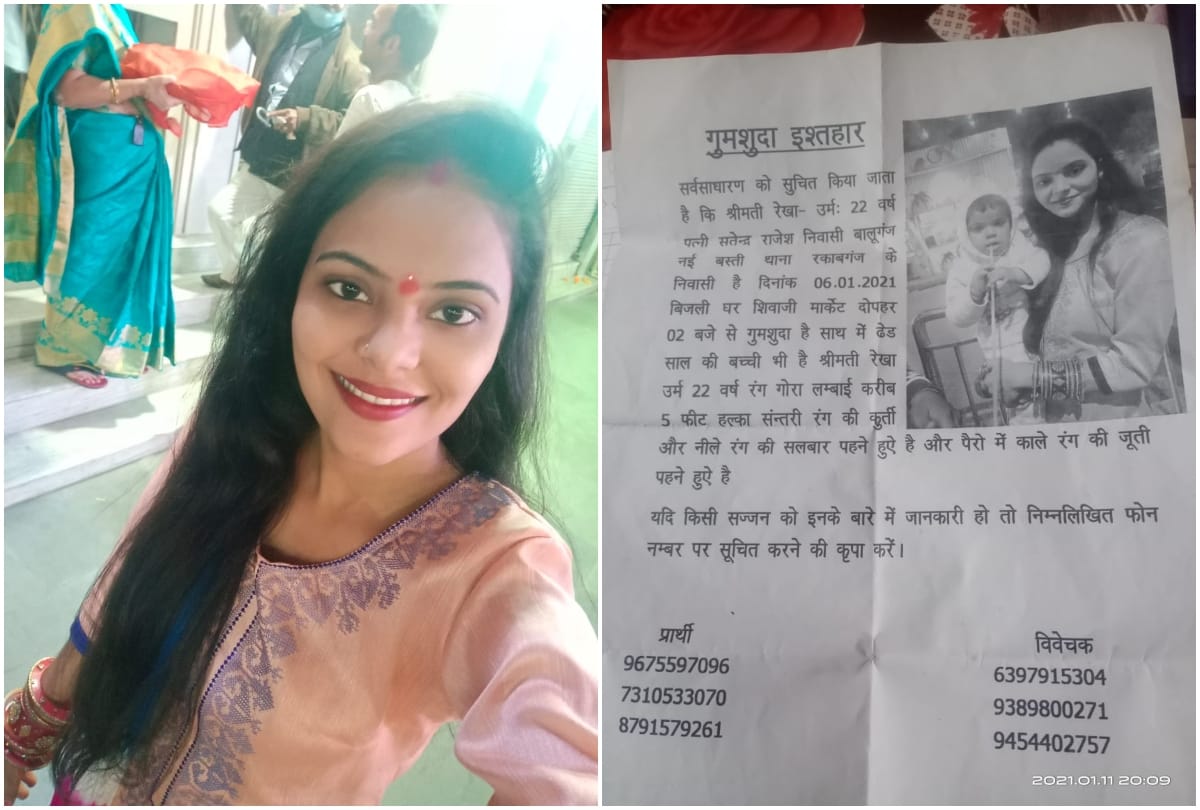 गुमशुदा इश्तहार
सर्वसाधारण को सुचित किया जाता
है कि श्रीमती रेखा- उर्मः 22 वर्ष
पत्नी सतेन्द्र राजेश निवासी बालूगंज
नई बस्ती थाना रकाबगंज के
निवासी है दिनांक 06.01.2021
बिजली घर शिवाजी मार्केट दोपहर
02 बजे से गुमशुदा है साथ में ढेड
साल की बच्ची भी है श्रीमती रेखा
उर्म 22 वर्ष रंग गोरा लम्बाई करीब
5 फीट हल्का संन्तरी रंग की कुर्ती
और नीले रंग की सलबार पहने हुऐ है और पैरो में काले रंग की जूती
पहने हुऐ है
यदि किसी सज्जन को इनके बारे में जानकारी हो तो निम्नलिखित फोन
नम्बर पर सूचित करने की कृपा करें।
प्रार्थी
9675597096
7310533070
8791579261
विवेचक
6397915304
9389800271
9454402757
2021.01.11 20:09